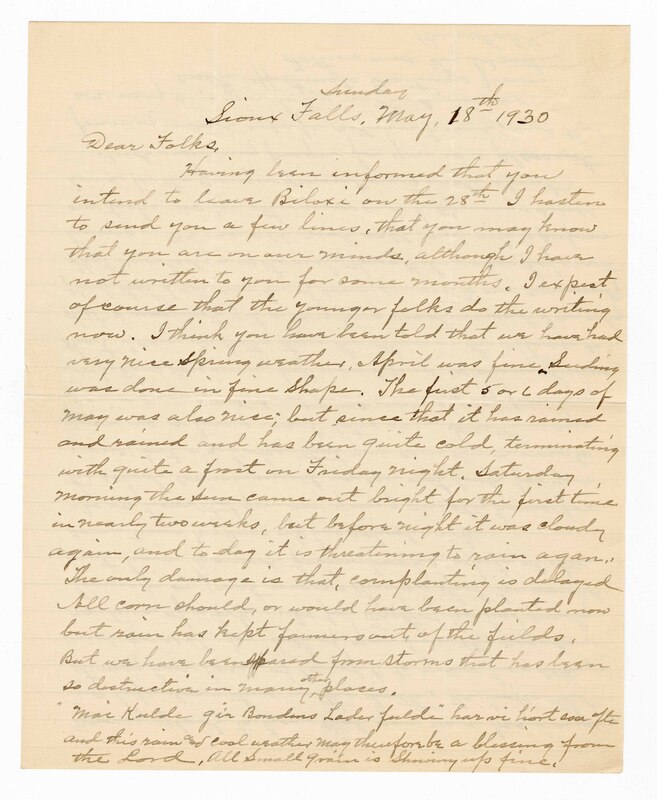 Sunday
Sioux Falls, May, 18th 1930
Dear Folks,
Having been informed that you
intend to leave Biloxi on the 28th I hasten
to send you a few lines, that you may know
that you are on our minds, although I have
not written to you for some months. I expect
of course that the younger folks do the writing
now. I think you have been told that we have had
very nice spring weather, April was fine. Seeding
was done in fine shape. The first 5 or 6 days of
May was also nice, but since that it has rained
and rained and has been quite cold, terminating
with quite a frost on Friday night. Saturday
morning the sun came out bright for the first time
in nearly two weeks, but before night it was cloudy
again, and to-day it is threatening to rain agan.
The only damage is that, cornplanting is delayed
All corn should, or would have been planted now
but rain has kept farmers out of the fields.
But we have been spared from storms that has been
so destructive in many other places.
"Mai Kulde gir Bondens Lader fulde" har vi hört saa ofte
and this rain and cool weather may therefore be a blessing from
the Lord. All small grain is showing up fine.